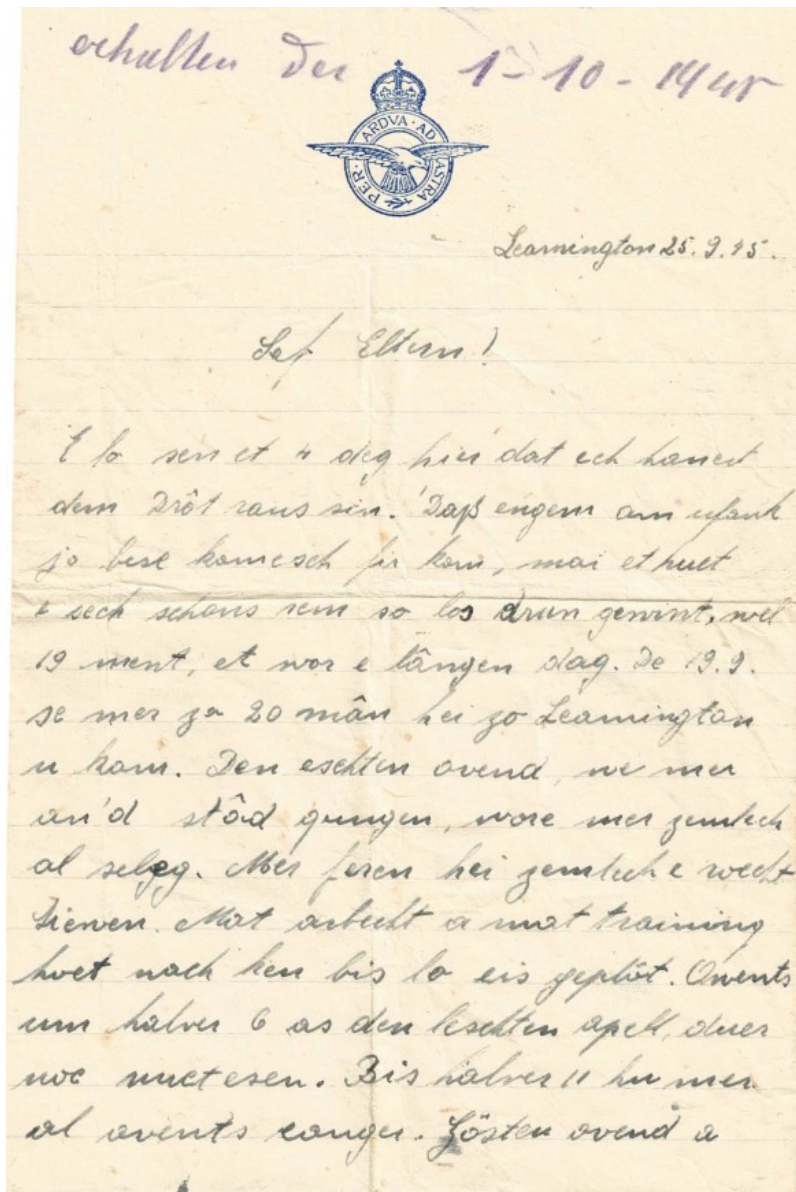 erhalten den 1-10-1945
PER · ARDVA · AD · ASTRA
Leamington 25.9.45.
Lef Eltern!
E lo sen et 4 deg hier dat ech hanert
dem Drôt raus sin. Daß engem am ufank
jo bise komesch fir kom, mai et huet
sech schons rem so los drun gewint, wel
19 ment, et wor e längen dag. De 19.9.
se mer zu 20 män hei zo Leamington
u kom. Den eschten ovend, we mer
an'd stâd gungen, wore mer zemlech
al seleg. Mer feren hei zemlech e recht
Liewen. Mat arbecht a mat training
huet nach ken bis lo eis geplôt. Owents
um halver 6 as den leschten apell, duer
noc nuet esen. Bis halver 11 hu mer
al ovents ausger. Gösten ovend a